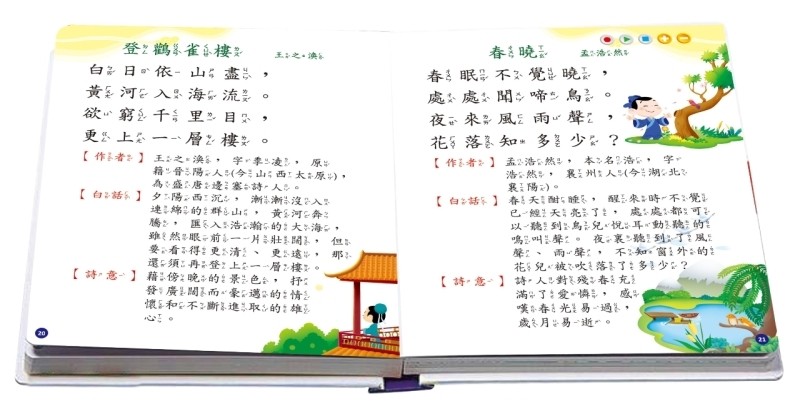 登鸛雀樓 王之渙
白日依山盡，
黃河入海流。
欲窮千里目，
更上一層樓。
【作者】王之渙，字季凌，原
籍晉陽人(今山西太原)，
為盛唐邊塞詩人。
【白話】夕陽西沉，漸漸沒入
連綿的群山，黃河奔
騰，匯入浩瀚的大海。
雖然眼前一片壯闊，但
要看得更清、更遠，那
還須再登上一層樓。
【詩意】藉傍晚的景色，抒
發廣闊而豪邁的情
懷和不斷進取的雄
心。
20
春曉 孟浩然
春眠不覺曉，
處處聞啼鳥。
夜來風雨聲，
花落知多少？
【作者】孟浩然，本名浩，字
浩然，襄州人(今湖北
襄陽)。
【白話】春天酣睡，醒來時不覺
已經天亮了，處處都可
以聽到鳥兒悅耳動聽的
鳴叫聲。夜裏聽到了風
聲、雨聲，不知窗外的
花兒被吹落了多少？
【詩意】詩人對殘春充
滿了愛憐，感
嘆春光易過，
歲月易逝。
21